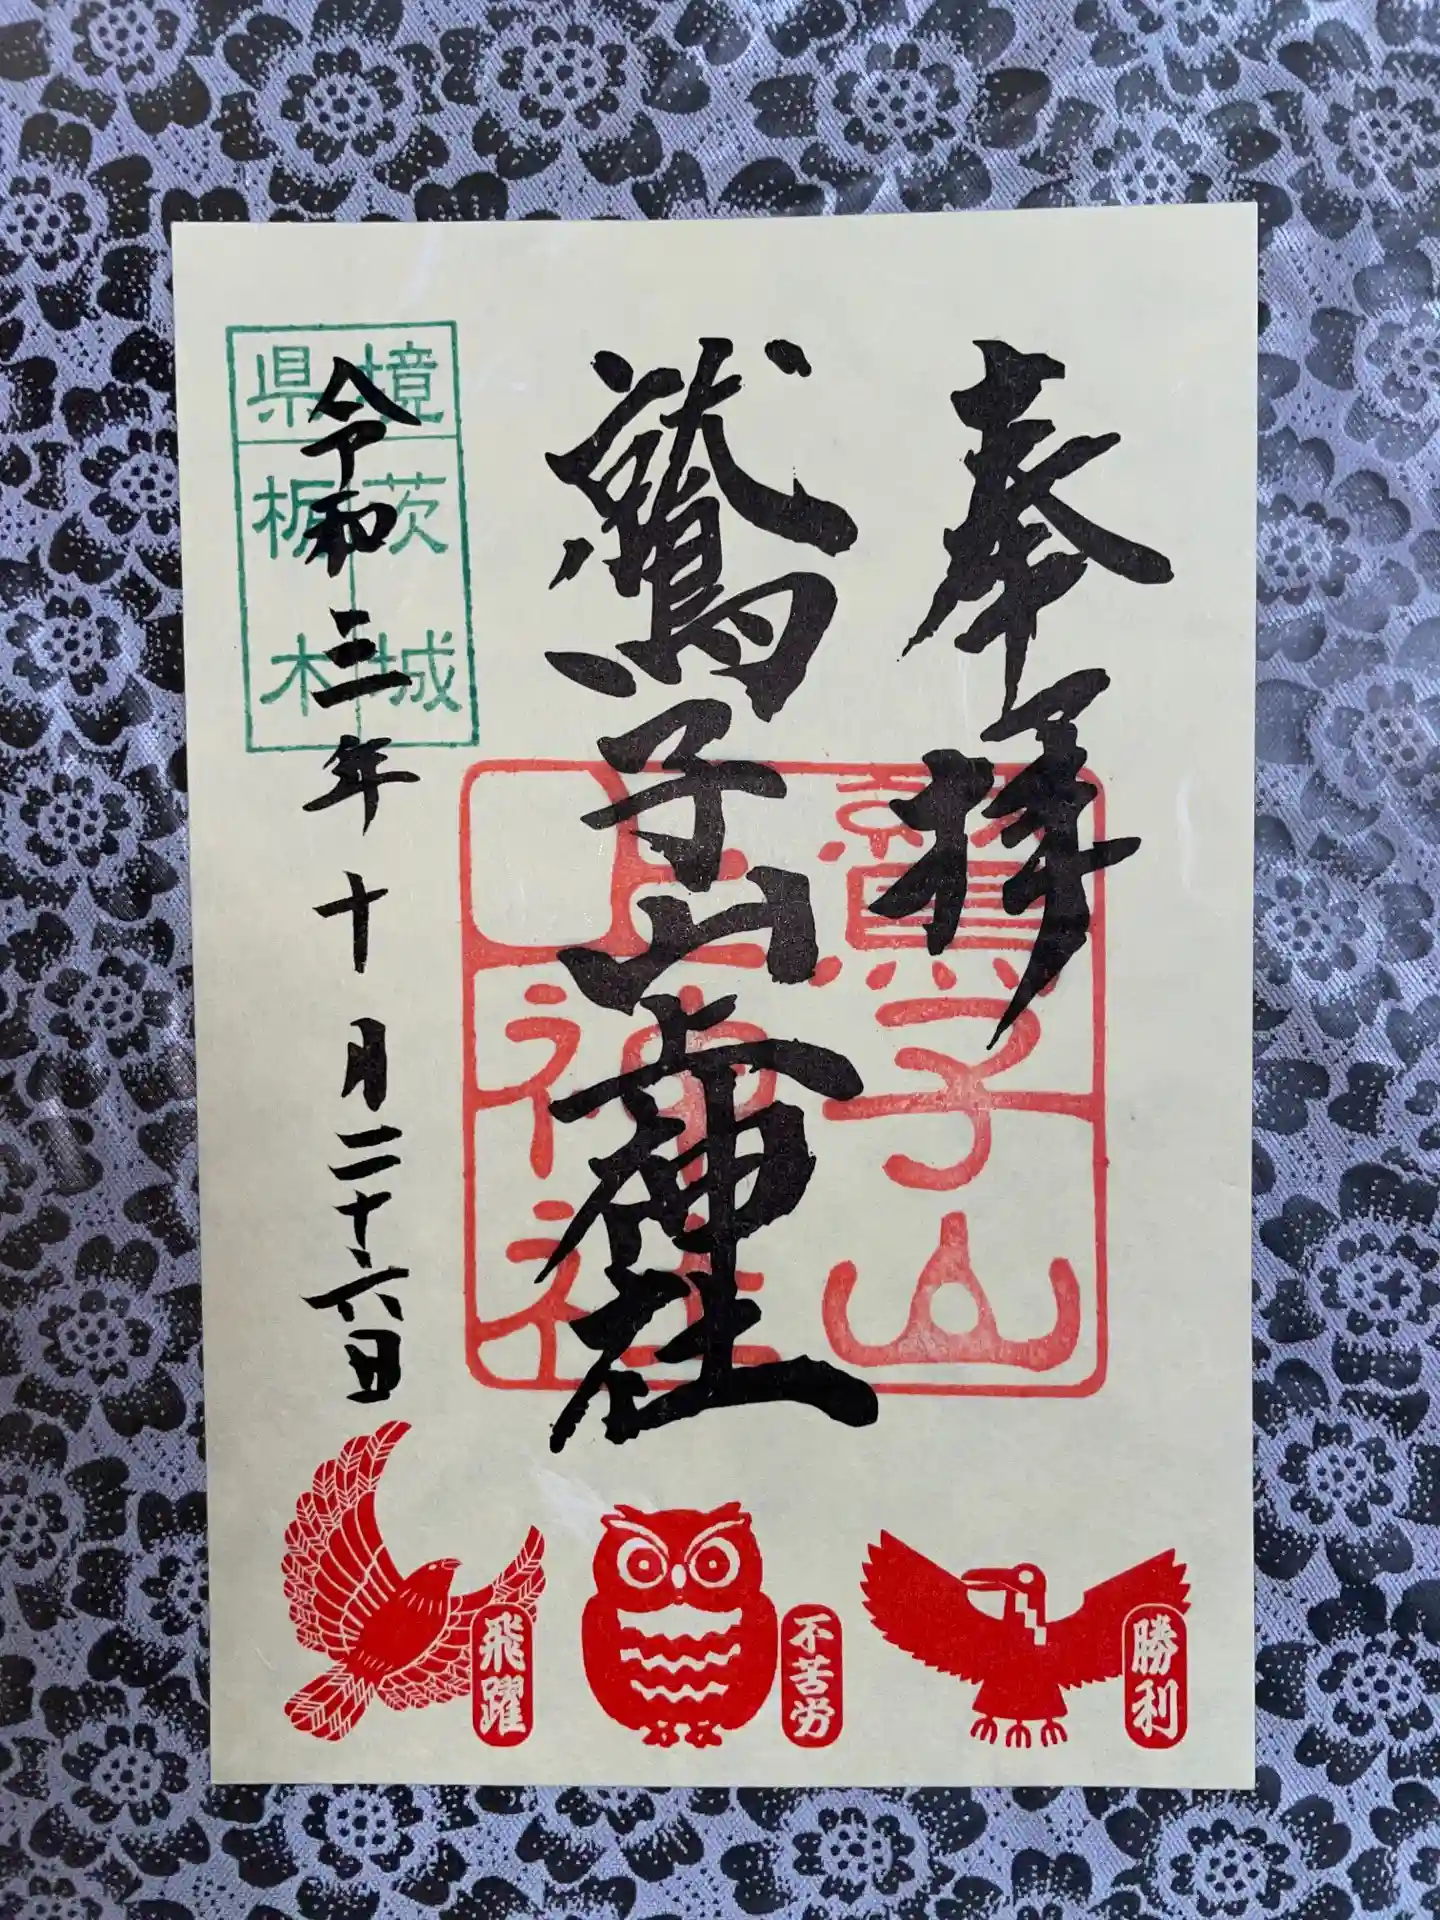 奉拝
鷲子山上神社
鷲子山
上神社
境県
茨城
栃木
令和三年十月二十六日
勝利
不苦労
飛躍